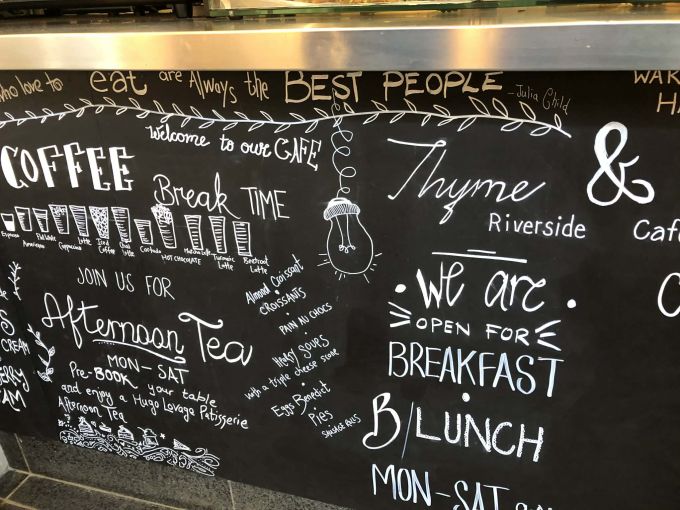 who love to eat are Always the BEST PEOPLE - Julia Child
Welcome to our CAFE
COFFEE
Break TIME
Espresso
Americano
Flat White
Cappuccino
Latte
Iced Coffee
Chai Latte
Cortado
HOT CHOCOLATE
Matcha Latte
Turmeric Latte
Beetroot Latte
JOIN US FOR
Afternoon Tea
MON-SAT
Pre-BOOK your table
and enjoy a Hugo Lovage Patisserie
Afternoon Tea
CREAM
Almond Croissant
CROISSANTS
PAIN AU CHOCS
HEARTY SOUPS
with a triple cheese scone
Eggs Benedict
Pies
SAUSAGE ROLLS
Thyme
Riverside
We are
OPEN FOR
BREAKFAST
B/LUNCH
MON-SAT
&